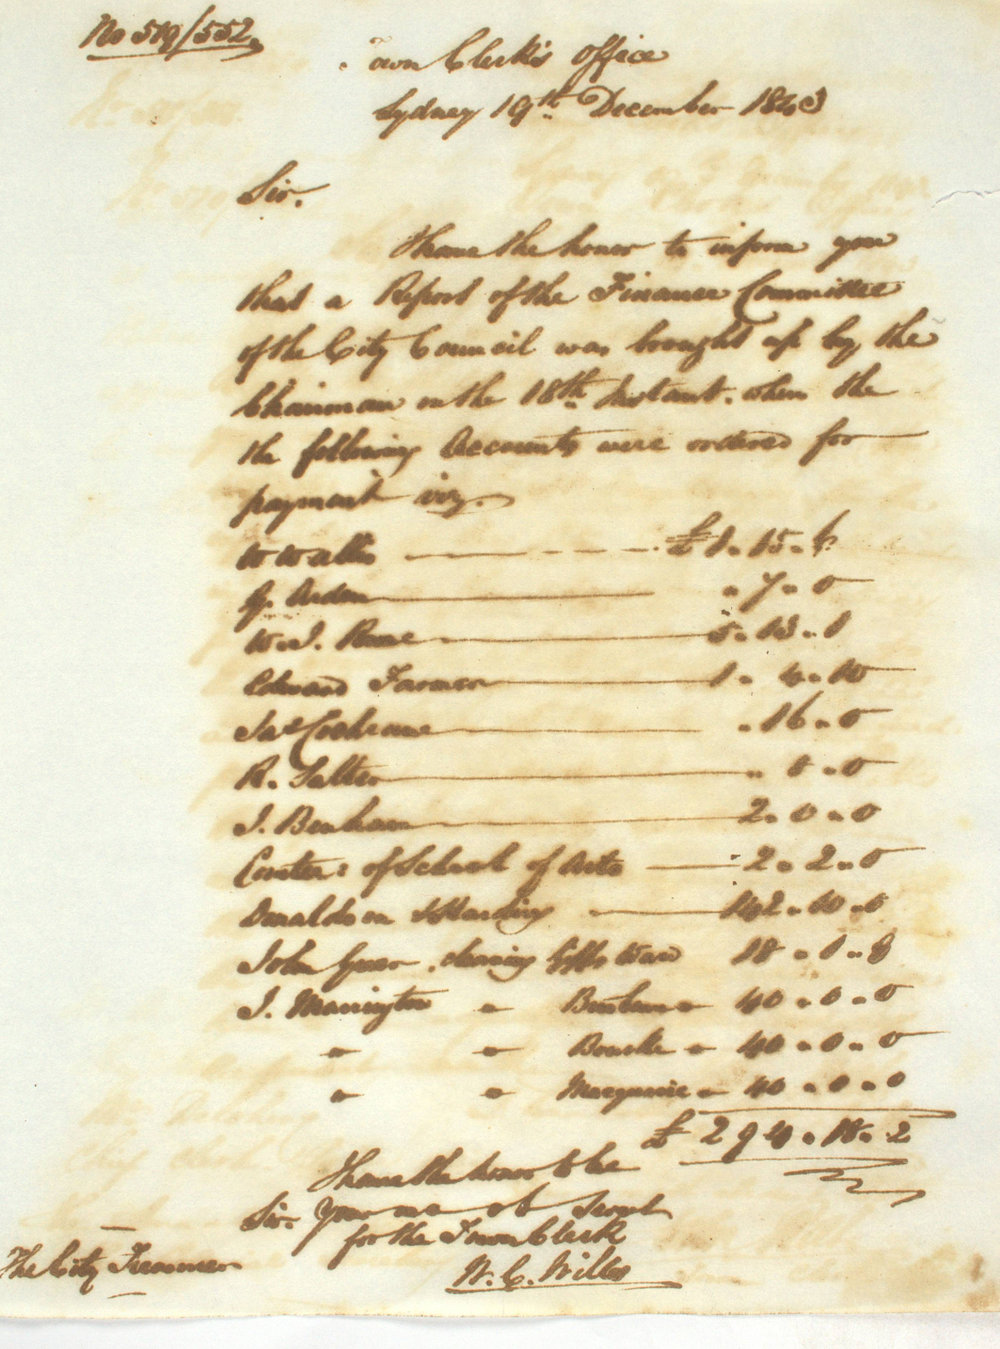 No 519/552.
Town Clerk's Office
Sydney 19th December 1843
Sir.
I have the honor to inform you
that a Report of the Finance Committee
of the City Council was brought up by the
Chairman on the 18th Instant. when the
the following Accounts were ordered for
payment viz.
W Wallis £1.15.6
G. Arden " 7 " 0
W. J. Row 5 " 13 " 1
Edward Farmer 1 " 4 " 10
Jas Cochrane " 16 " 0
R. Salter " 5 " 0
J. Benham 2 " 0 " 0
Comtee: of School of Arts 2 " 2 " 0
Donaldson & Harding 142 " 10 " 0
John Greer, cleaning Gipps Ward 18 " 1 " 8
J. Mannington " Brisbane " 40 " 0 " 0
" " Bourke " 40 " 0 " 0
" " Macquarie " 40 " 0 " 0
£ 294 " 18 " 2
I have the honor to be
Sir. Your mo ob Servt
for the Town Clerk
W. C. Wills
The City Treasurer